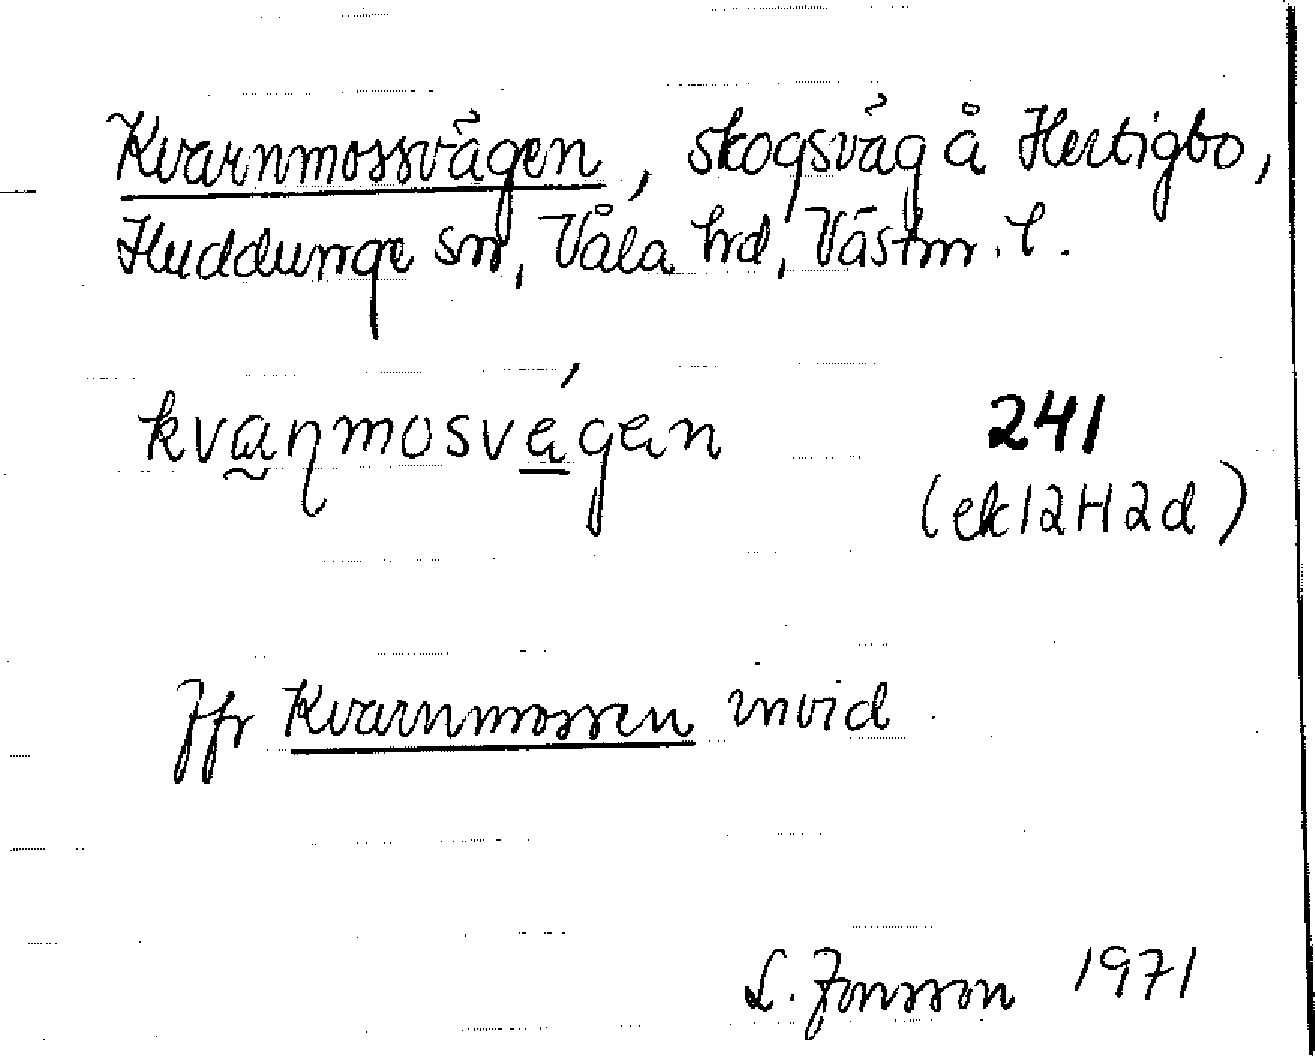 Kvarnmossvägen, skogsväg å Hertigbo,
Huddunge sn, Våla hrd, Västm. l.
kva̰ɳmosvé̠gen 241
(ek 12H2d)
Jfr Kvarnmossen invid
L. Jonsson 1971